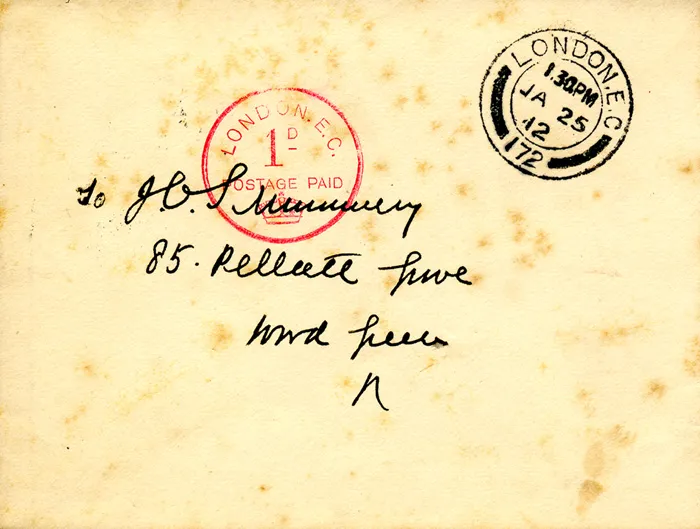 LONDON.E.C
1.30PM
JA 25
12
172
LONDON.E.C.
1D
POSTAGE PAID
To J. C. S Mummery
85. Pellatt Grove
Wood Green
N